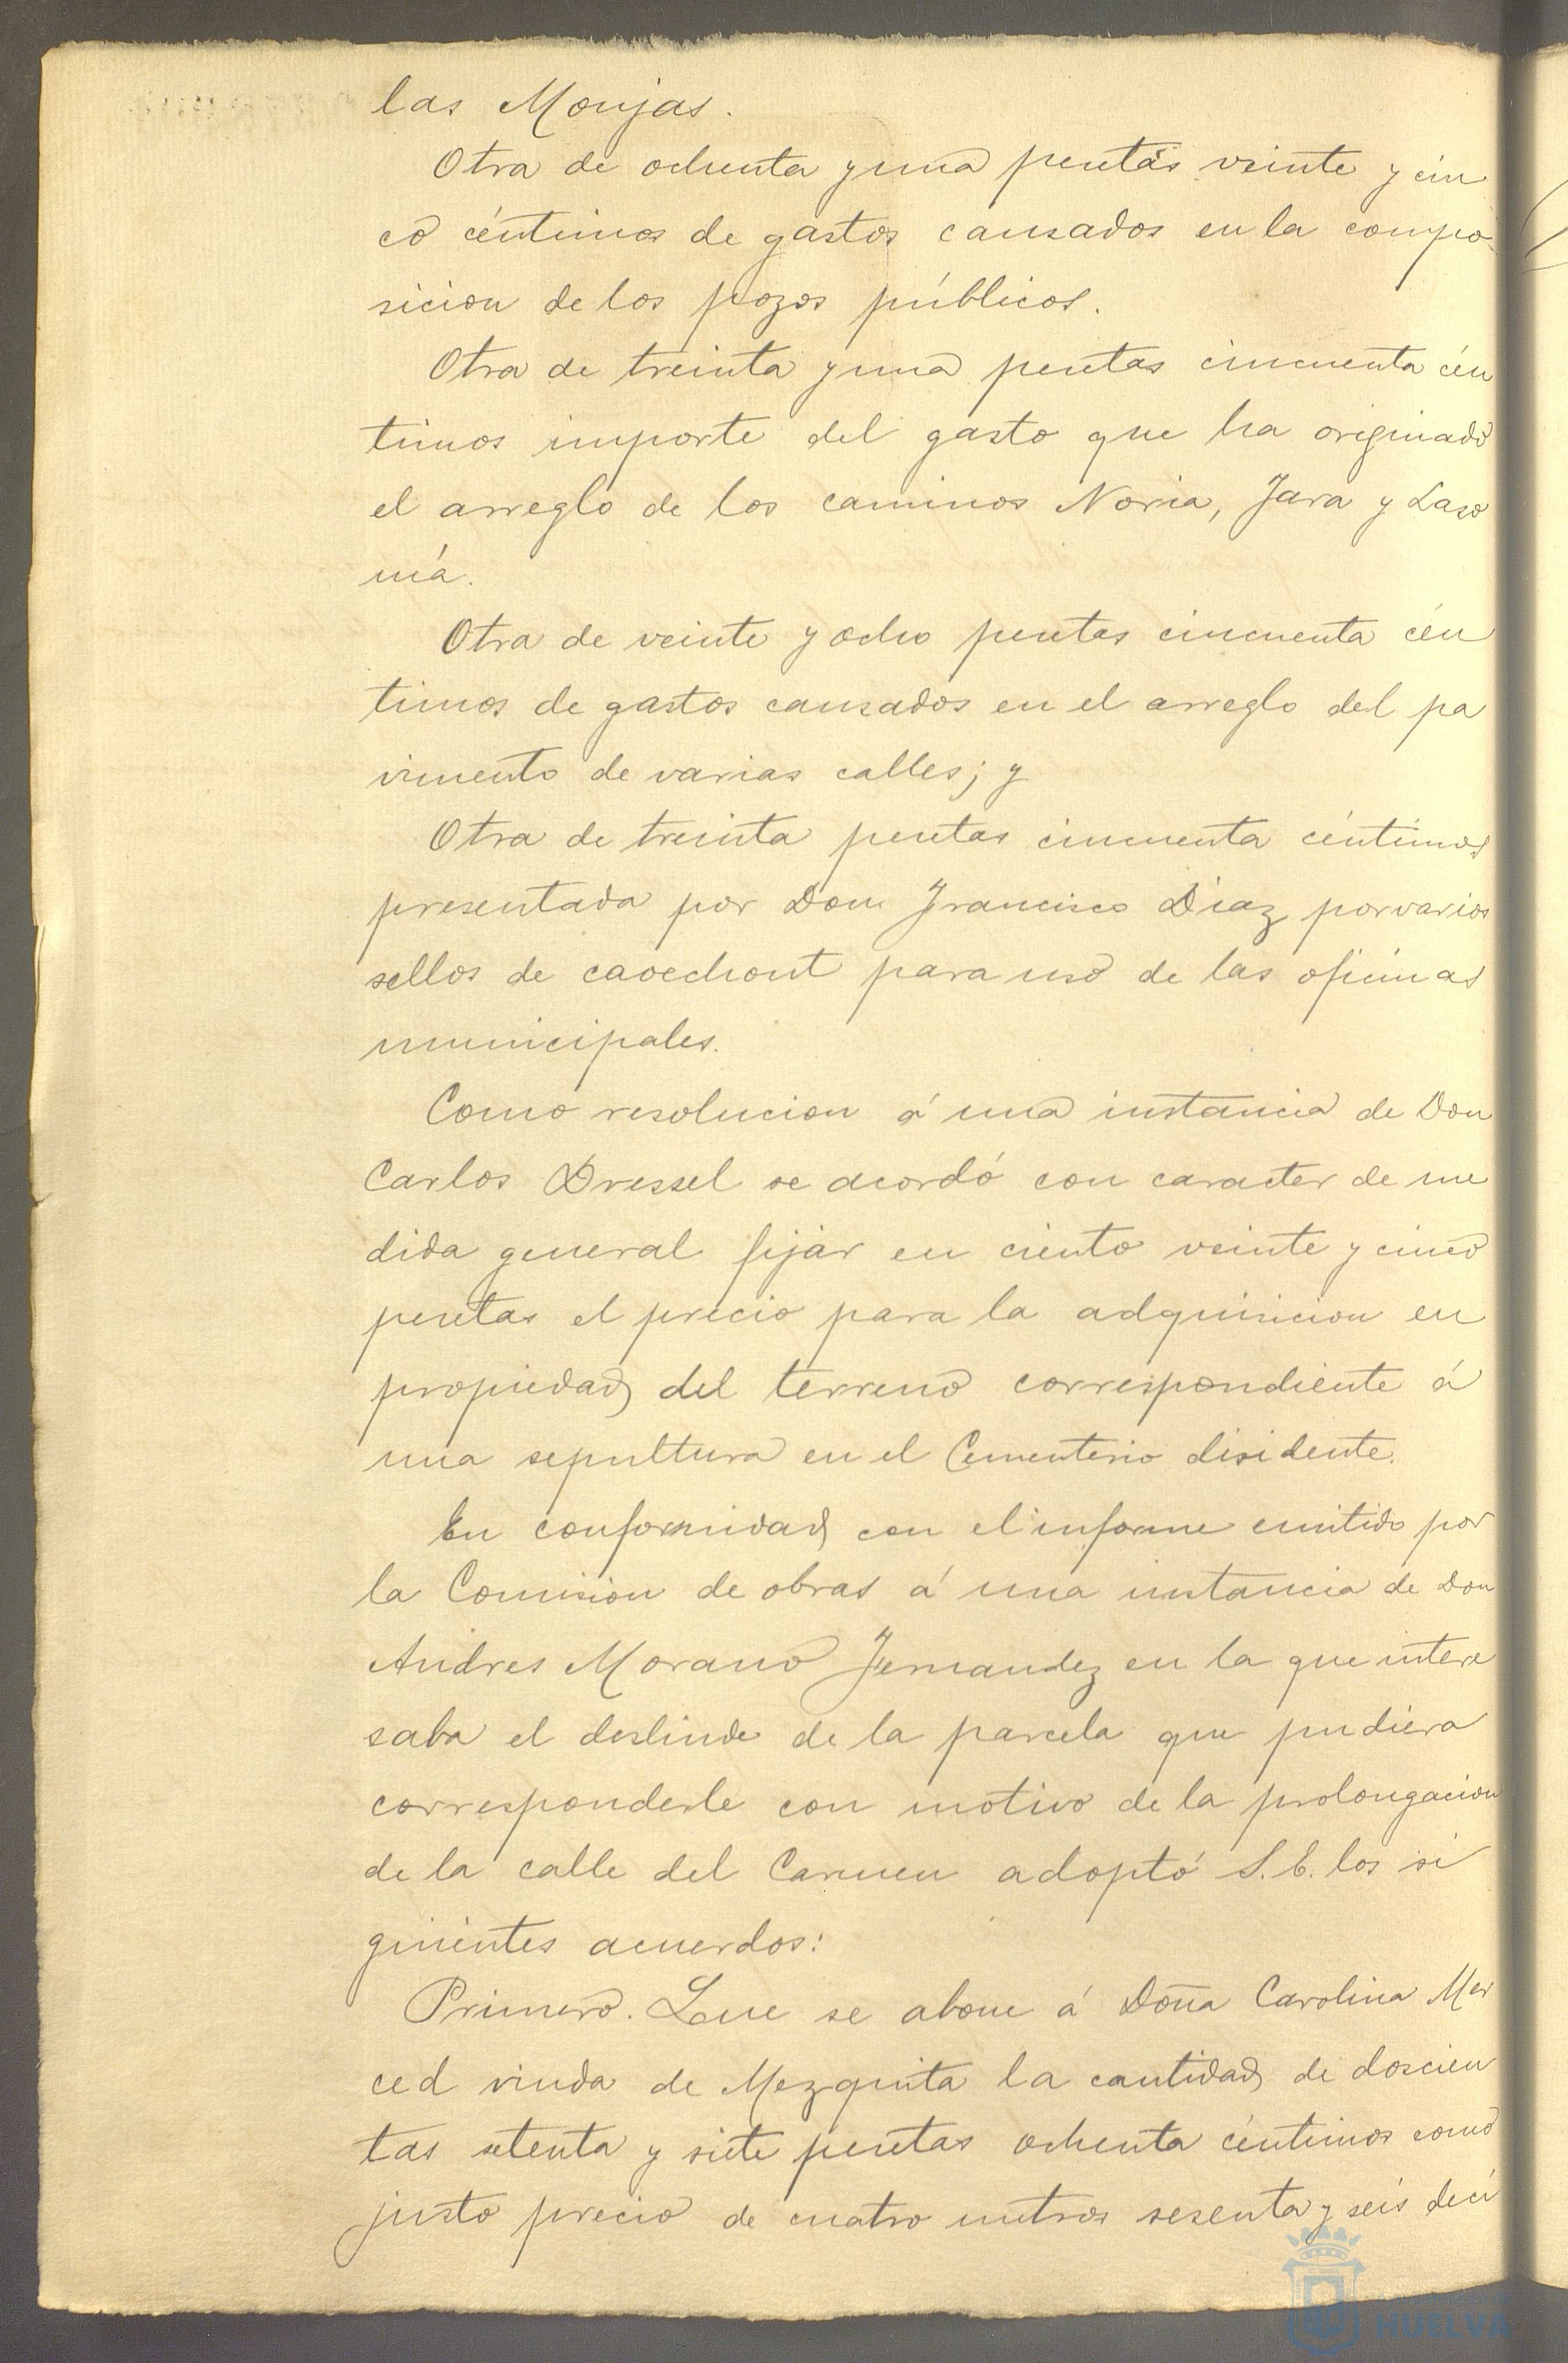 las Monjas.
Otra de ochenta y una pesetas veinte y cin
co céntimos de gastos causados en la compo-
sicion de los pozos públicos.
Otra de treinta y una pesetas cincuenta cén
timos importe del gasto que ha originado
el arreglo de los caminos Noria, Jara y Laso
má.
Otra de veinte y ocho pesetas cincuenta cén
timos de gastos causados en el arreglo del pa
vimento de varias calles; y
Otra de treinta pesetas cincuenta céntimos
presentada por Don Francisco Diaz por varios
sellos de caoechout para uso de las oficinas
municipales.
Como resolucion á una instancia de Don
Carlos Dressel se acordó con caracter de me
dida general fijar en ciento veinte y cinco
pesetas el precio para la adquisicion en
propiedad del terreno correspondiente á
una sepultura en el Cementerio disidente.
En conformidad con el informe emitido por
la Comision de obras á una instancia de Don
Andres Morano Fernandez en la que intere
saba el deslinde de la parcela que pudiera
corresponderle con motivo de la prolongacion
de la calle del Carmen adoptó S.E. los si
guientes acuerdos:
Primero. Que se abone á Doña Carolina Mer
ced viuda de Mezquita la cantidad de doscien
tas setenta y siete pesetas ochenta céntimos como
justo precio de cuatro metros sesenta y seis deci
HUELVA